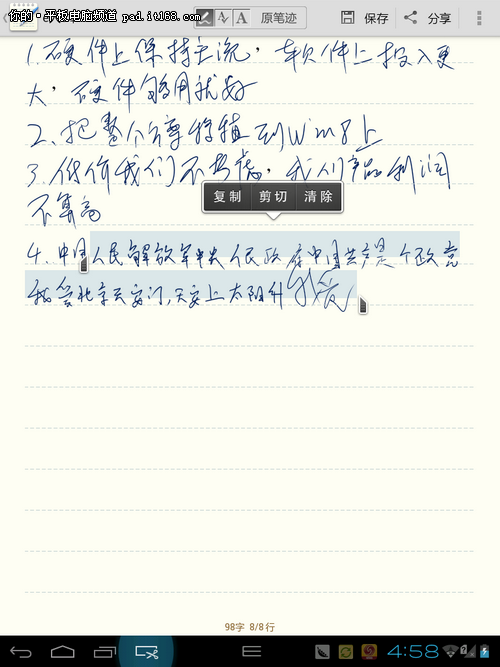 你的·平板电脑频道 pad.it168.com
原笔迹
保存
分享
1.硬件上保持主流，软件上投入更
大，硬件够用就好
2.把整个分享移植到Win8上
3.低价我们不考虑，我们产品利润
不算高
复制 剪切 清除
4.中国人民解放军中央人民政府中国共产是个政党
我爱北京天安门,天安上太阳升
98字 8/8行
4:58